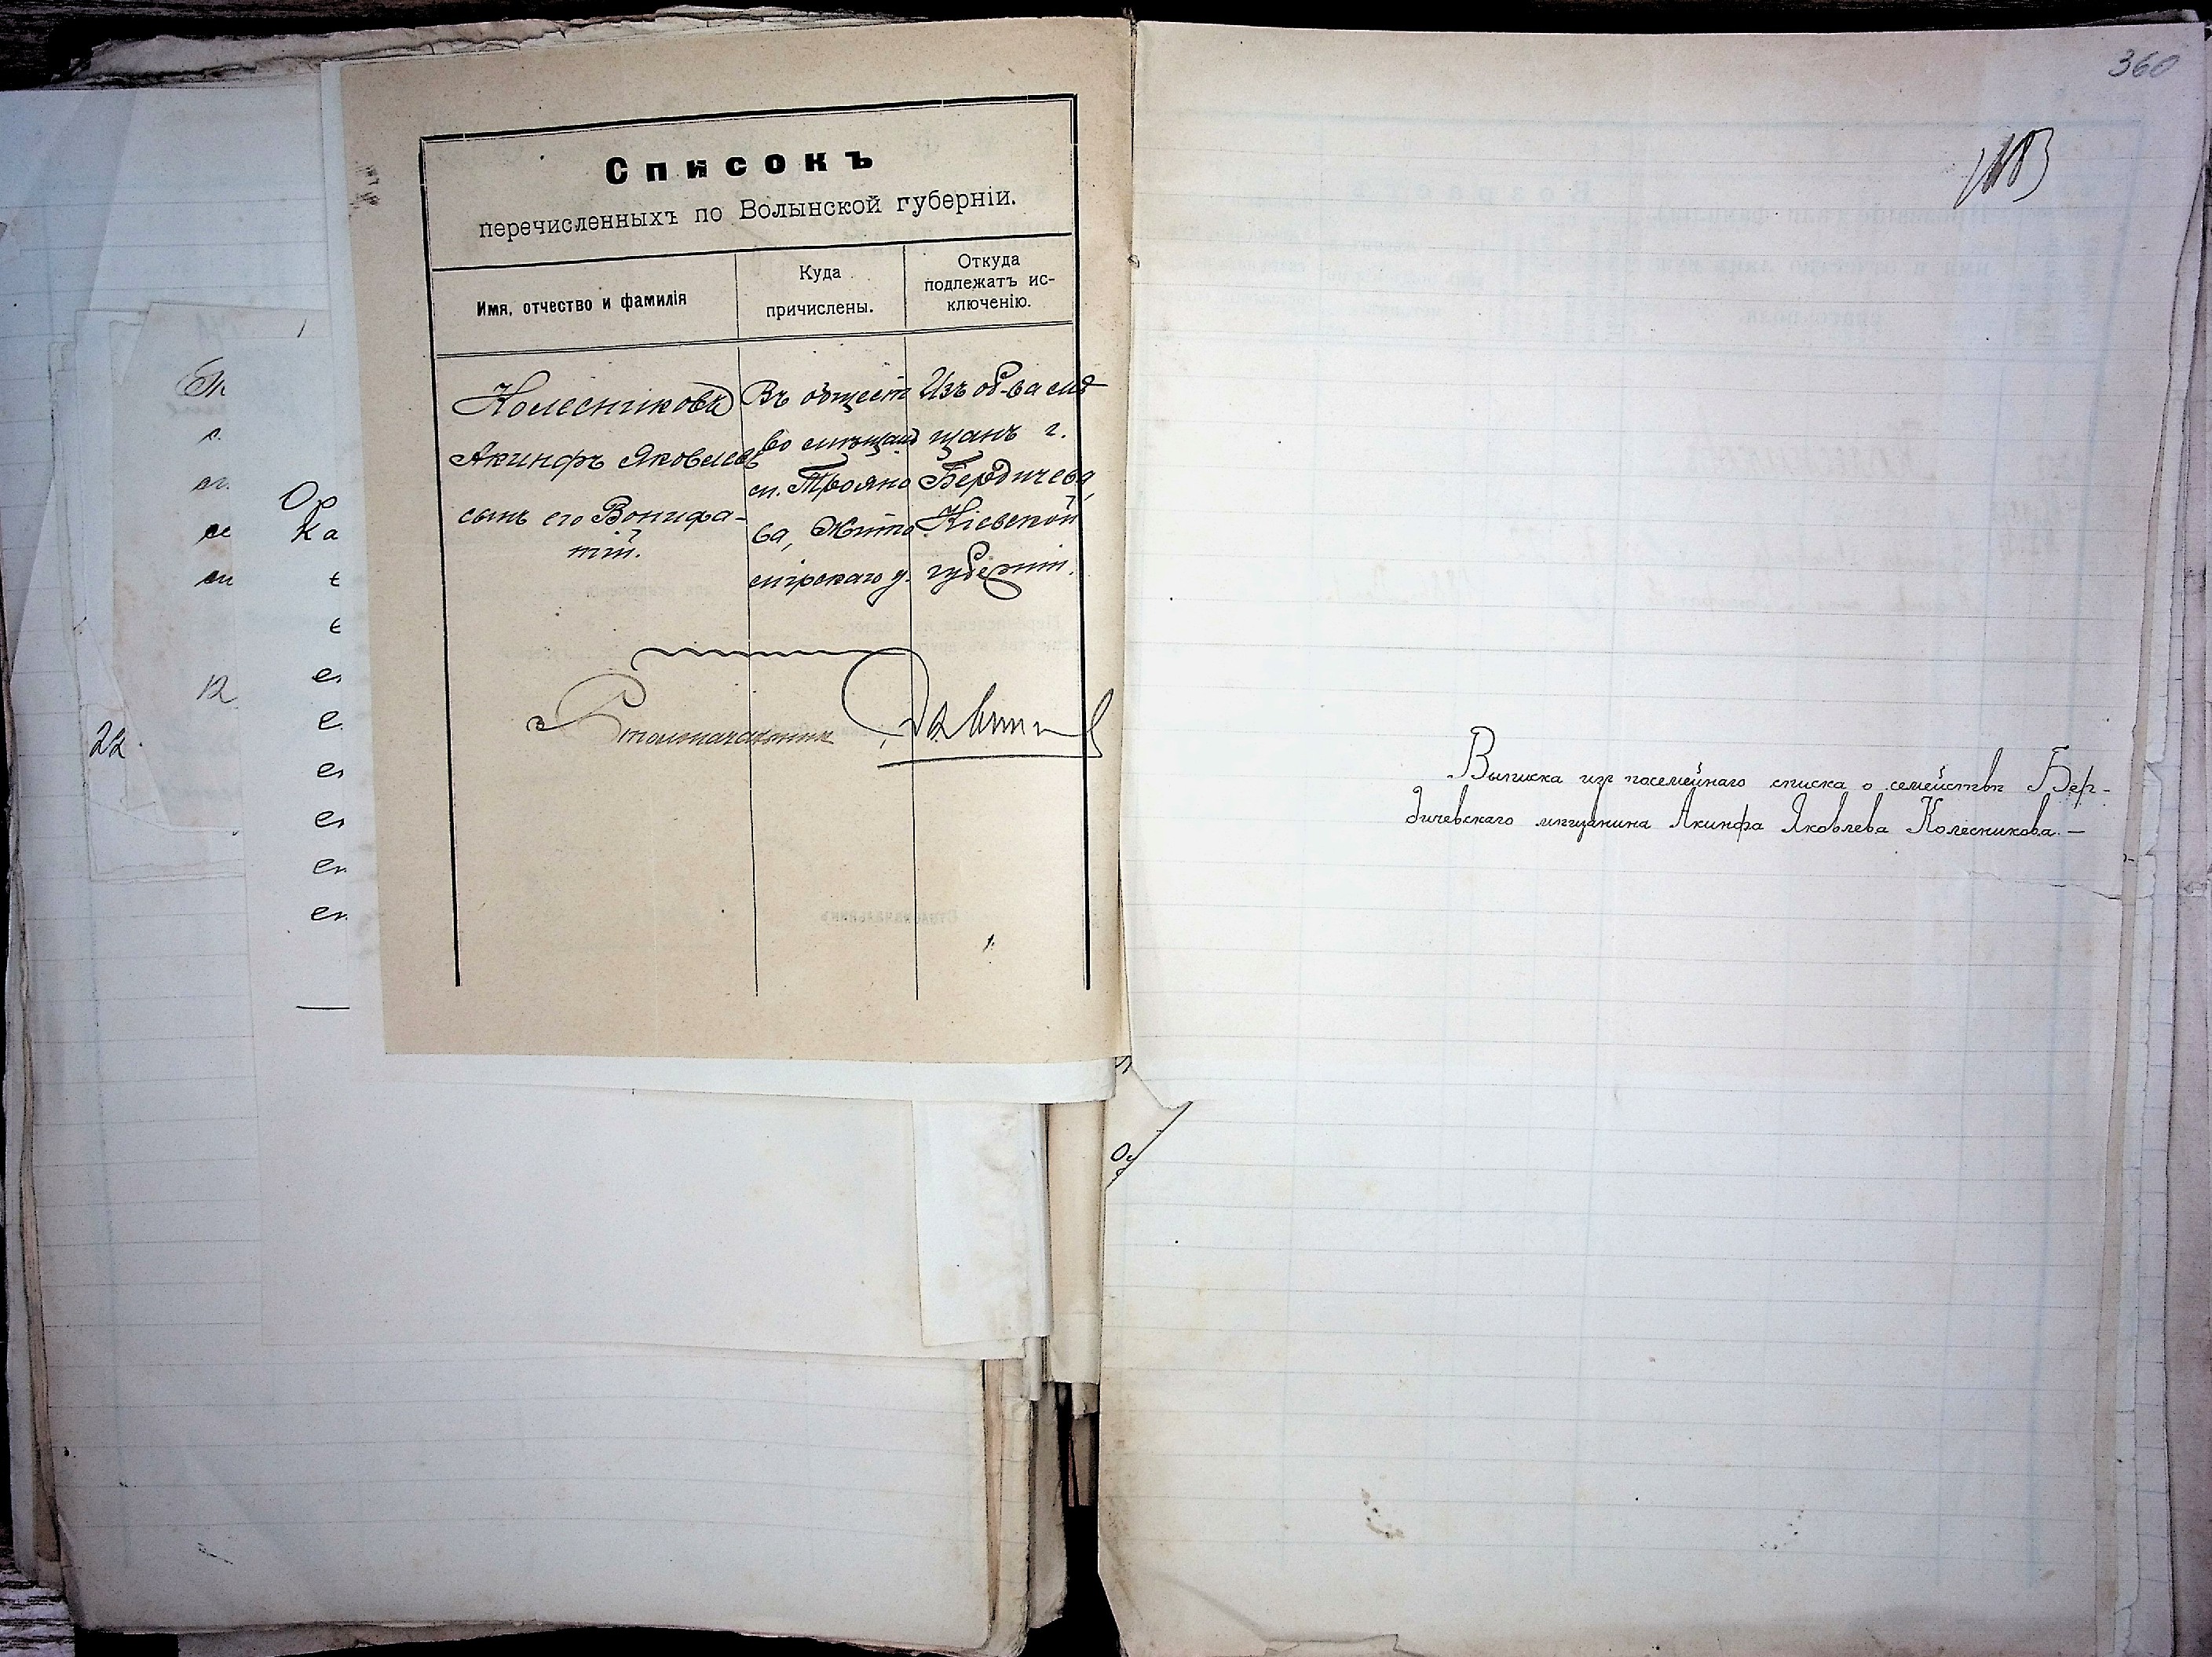 Списокъ
перечисленныхъ по Волынской губерніи.
Имя, отчество и фамилія
Куда
причислены.
Откуда
подлежатъ ис-
ключенію.
Колесниковъ
Акинфъ Яковлевъ
сынъ его Вонифа-
тій.
Въ общест
во мѣщанъ
м. Трояно
ва, Жито
мірскаго у.
Изъ об-ва мѣ
щанъ г.
Бердичева,
Кіевской
губерніи.
Столоначальникъ
22
12
Ор
Ка
360
Выписка изъ посемейнаго списка о семействѣ Бер-
дичевскаго мѣщанина Акинфа Яковлева Колесникова. —